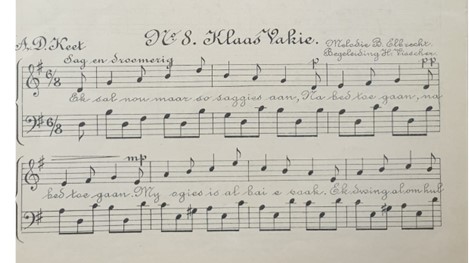 A.D. Keet
No 8. Klaas Vakie.
Melodie B. Elbrecht.
Begeleiding H. Visscher.
Sag en droomerig
p
pp
6/8
Ek sal nou maar so saggies aan, Na bed toe gaan, na
6/8
mp
bed toe gaan. My ogies is al bai e vaak. Ek dwing al om hul